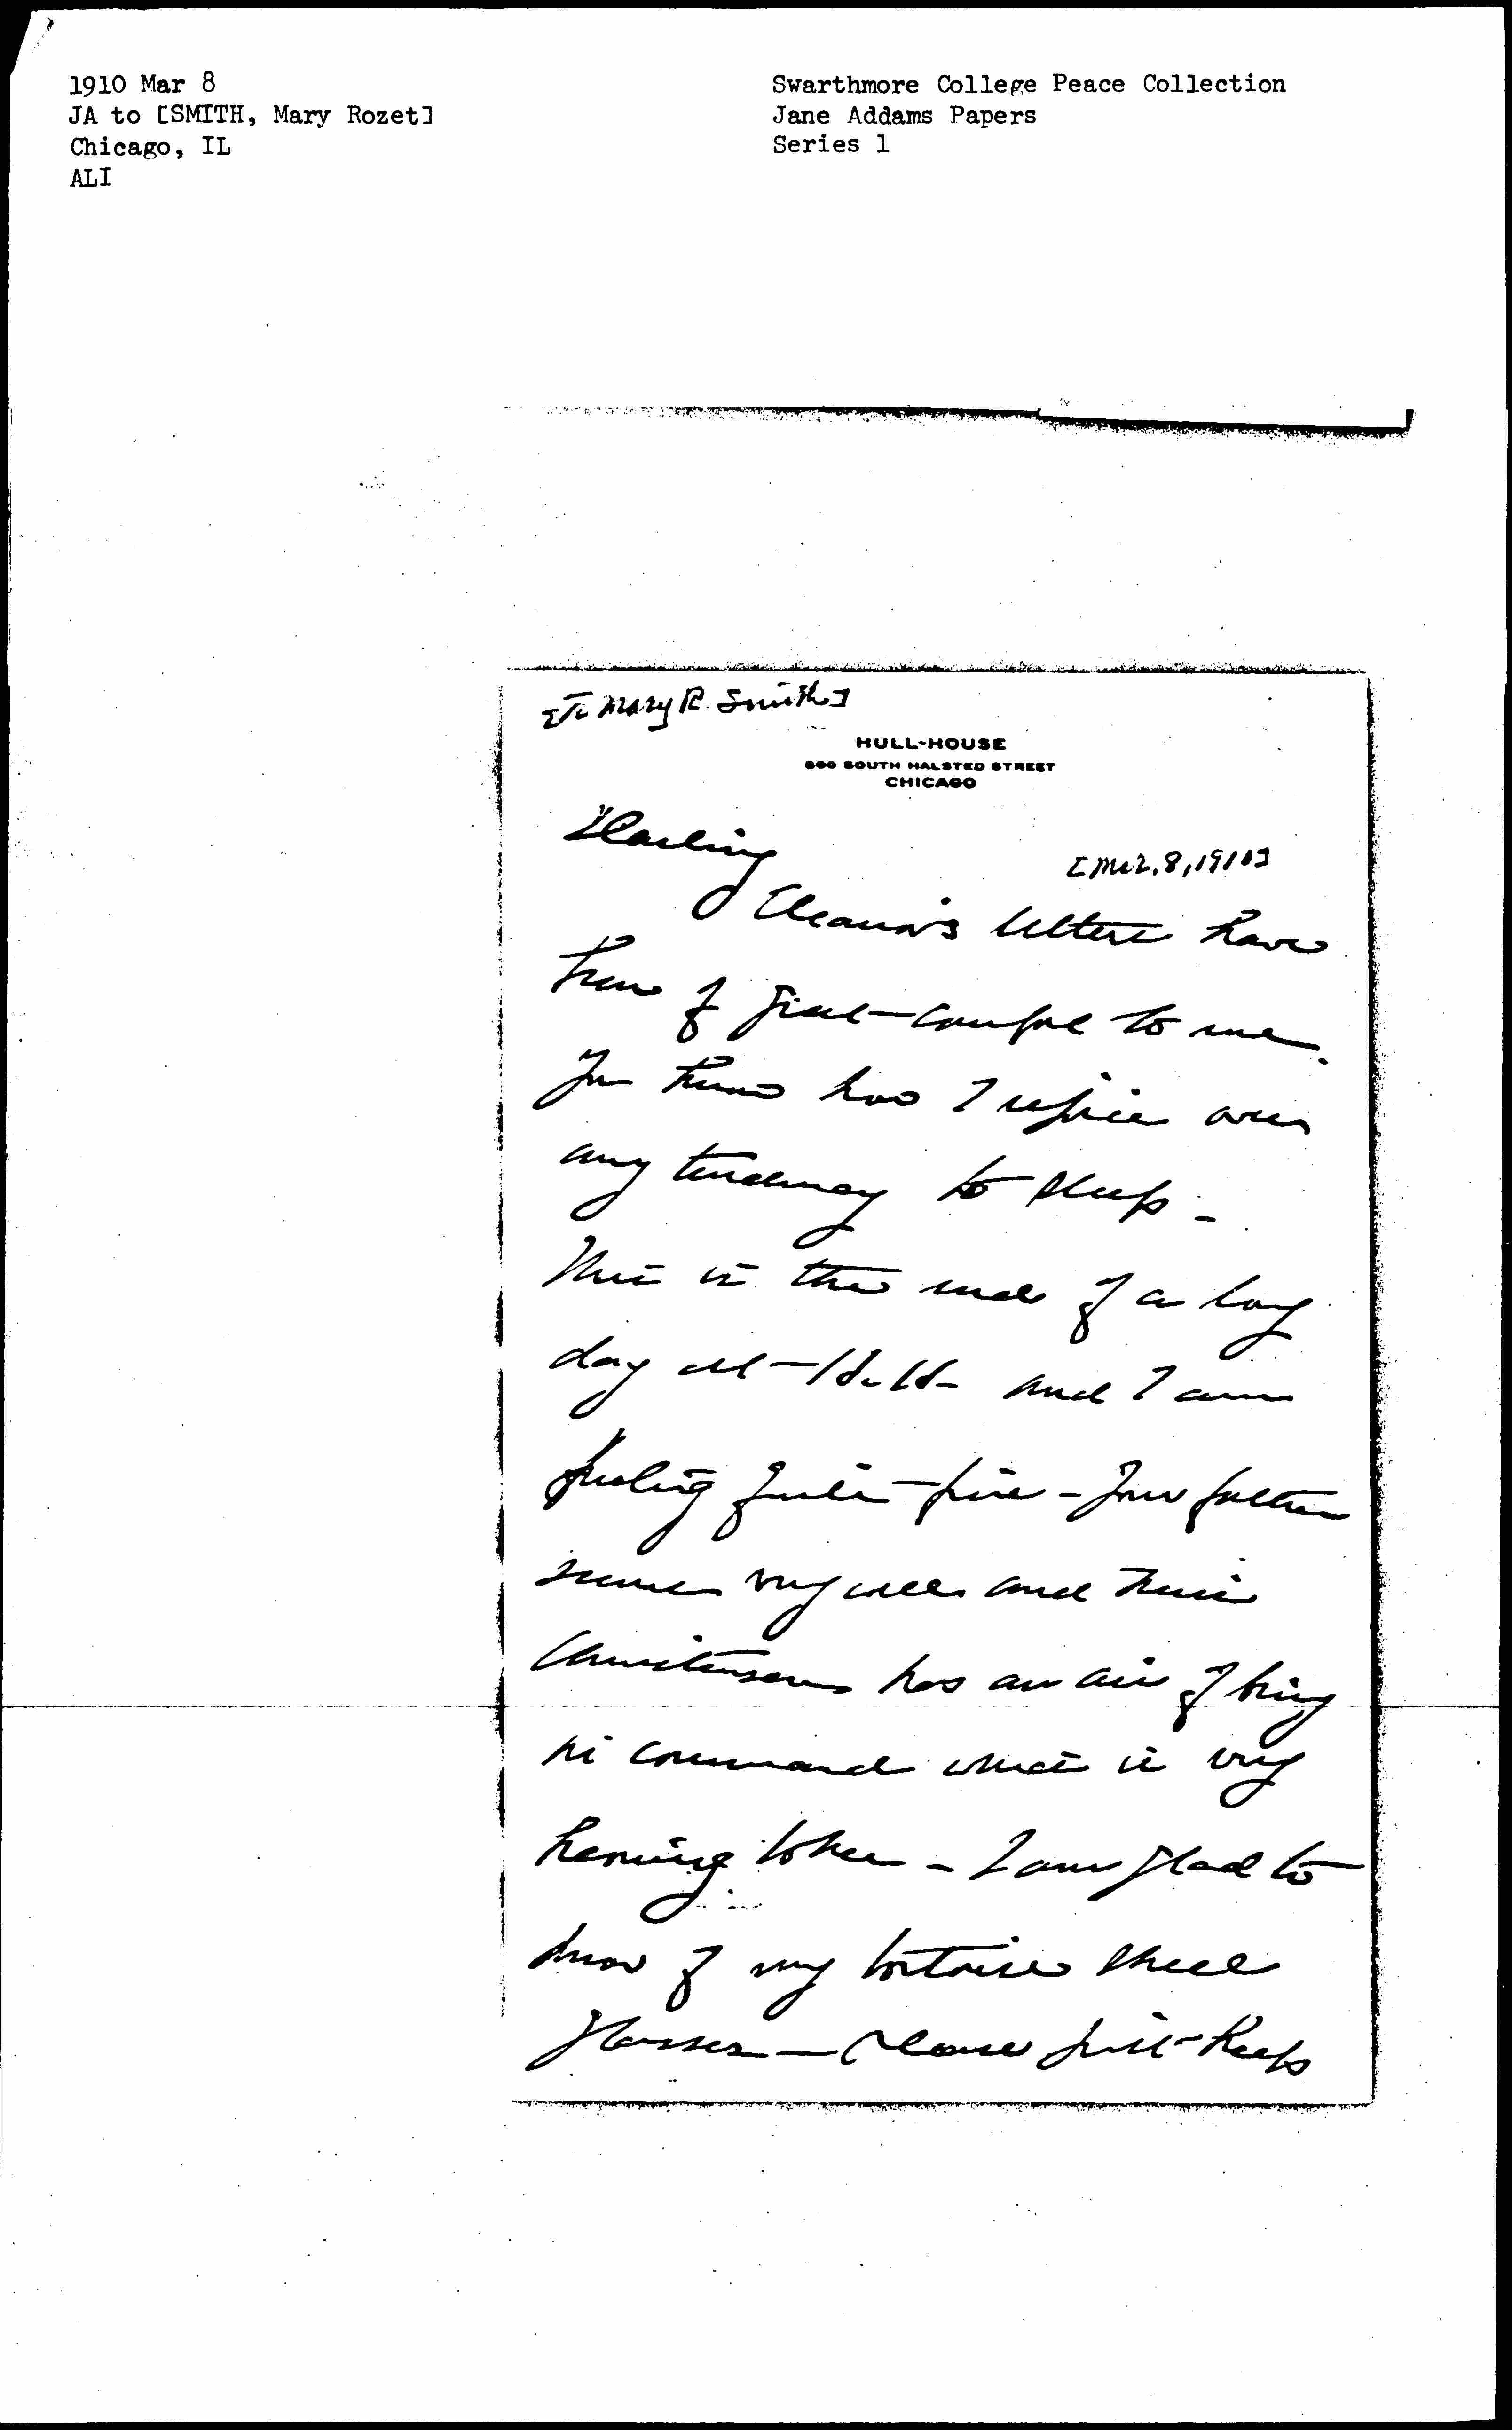 1910 Mar 8
JA to [SMITH, Mary Rozet]
Chicago, IL
ALI
Swarthmore College Peace Collection
Jane Addams Papers
Series 1
[To Mary R. Smith]
HULL-HOUSE
800 SOUTH HALSTED STREET
CHICAGO
Darling
[Mar. 8, 1910]
Eleanor's letters have
been of great comfort to me.
You know how I rejoice over
any tendency to sleep -
This is the end of a long
day at H. H. and I am
feeling quite fine - Your father
seems very well and Miss
Christensen has an air of being
in command which is very
to her - I am glad to
know of my tortoise shell
glasses - Please just keep